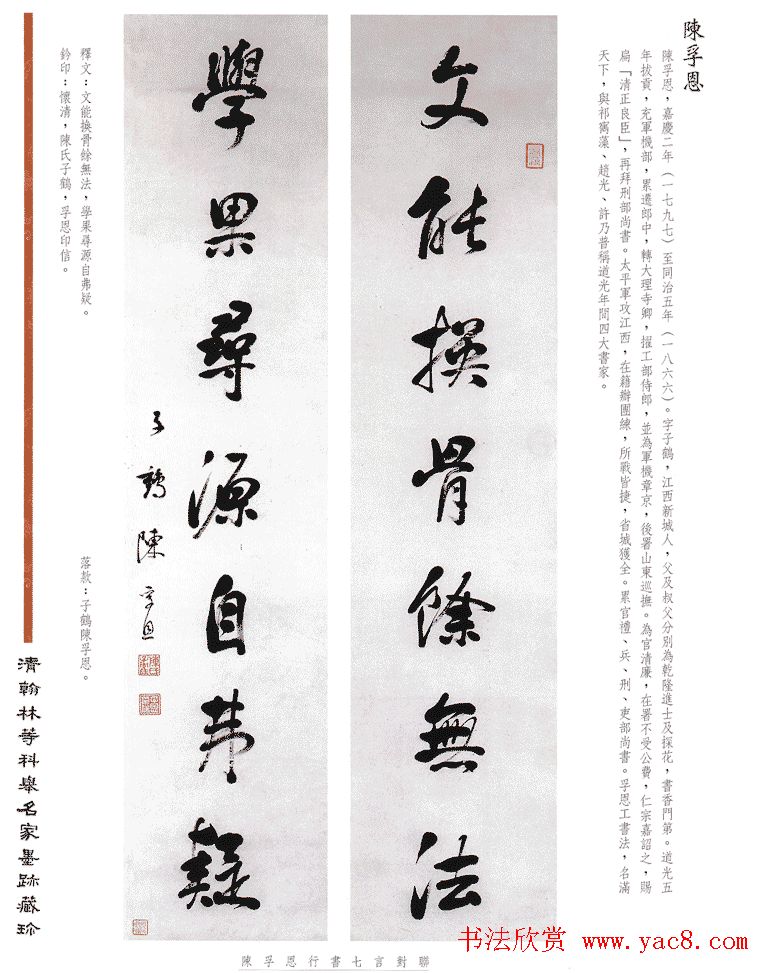 陳孚恩
陳孚恩，嘉慶二年（一七九七）至同治五年（一八六六）。字子鶴，江西新城人，父及叔父分別為乾隆進士及探花，書香門第。道光五
年拔貢，充軍機部，累遷郎中，轉大理寺卿，擢工部侍郎，並為軍機章京，後署山東巡撫。為官清廉，在署不受公費，仁宗嘉詔之，賜
扁「清正良臣」，再拜刑部尚書。太平軍攻江西，在籍辦團練，所戰皆捷，省城獲全。累官禮、兵、刑、吏部尚書。孚恩工書法，名滿
天下，與祁寯藻、趙光、許乃普稱道光年間四大書家。
文能換骨餘無法
學果尋源自弗疑
子鶴陳孚恩
釋文：文能換骨餘無法，學果尋源自弗疑。
落款：子鶴陳孚恩。
鈐印：懷清，陳氏子鶴，孚恩印信。
清翰林等科舉名家墨跡藏珍
陳孚恩行書七言對聯
书法欣赏 www.yac8.com